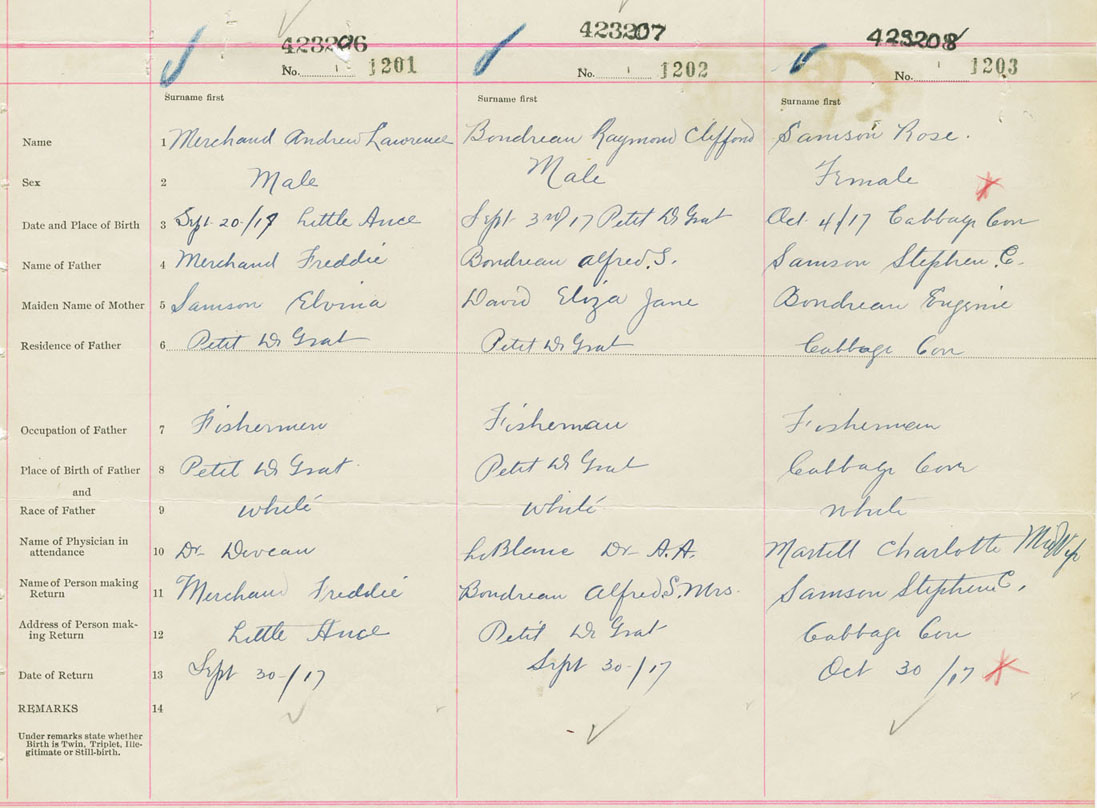 423206 423207 423208
No. 1201 No. 1202 No. 1203
Surname first Surname first Surname first
Name 1 Merchand Andrew Lawrence Bondreau Raymond Clifford Samson Rose.
Sex 2 Male Male Female
Date and Place of Birth 3 Sept 20/17 Little Ance Sept 3rd/17 Petit De Grat Oct 4/17 Cabbage Cove
Name of Father 4 Merchand Freddie Bondreau Alfred.S. Samson Stephen.C.
Maiden Name of Mother 5 Samson Elvina David Eliza Jane Bondreau Eugenie
Residence of Father 6 Petit De Grat Petit De Grat Cabbage Cove
Occupation of Father 7 Fishermen Fisherman Fisherman
Place of Birth of Father 8 Petit De Grat Petit De Grat Cabbage Cove
and
Race of Father 9 White White White
Name of Physician in
attendance 10 Dr. Deveau LeBlanc Dr A.A. Martell Charlotte MidWife
Name of Person making
Return 11 Merchand Freddie Bondreau Alfred.S. Mrs. Samson Stephen C.
Address of Person mak-
ing Return 12 Little Ance Petit De Grat Cabbage Cove
Date of Return 13 Sept 30/17 Sept 30/17 Oct 30/17
REMARKS 14
Under remarks state whether
Birth is Twin, Triplet, Ille-
gitimate or Still-birth.